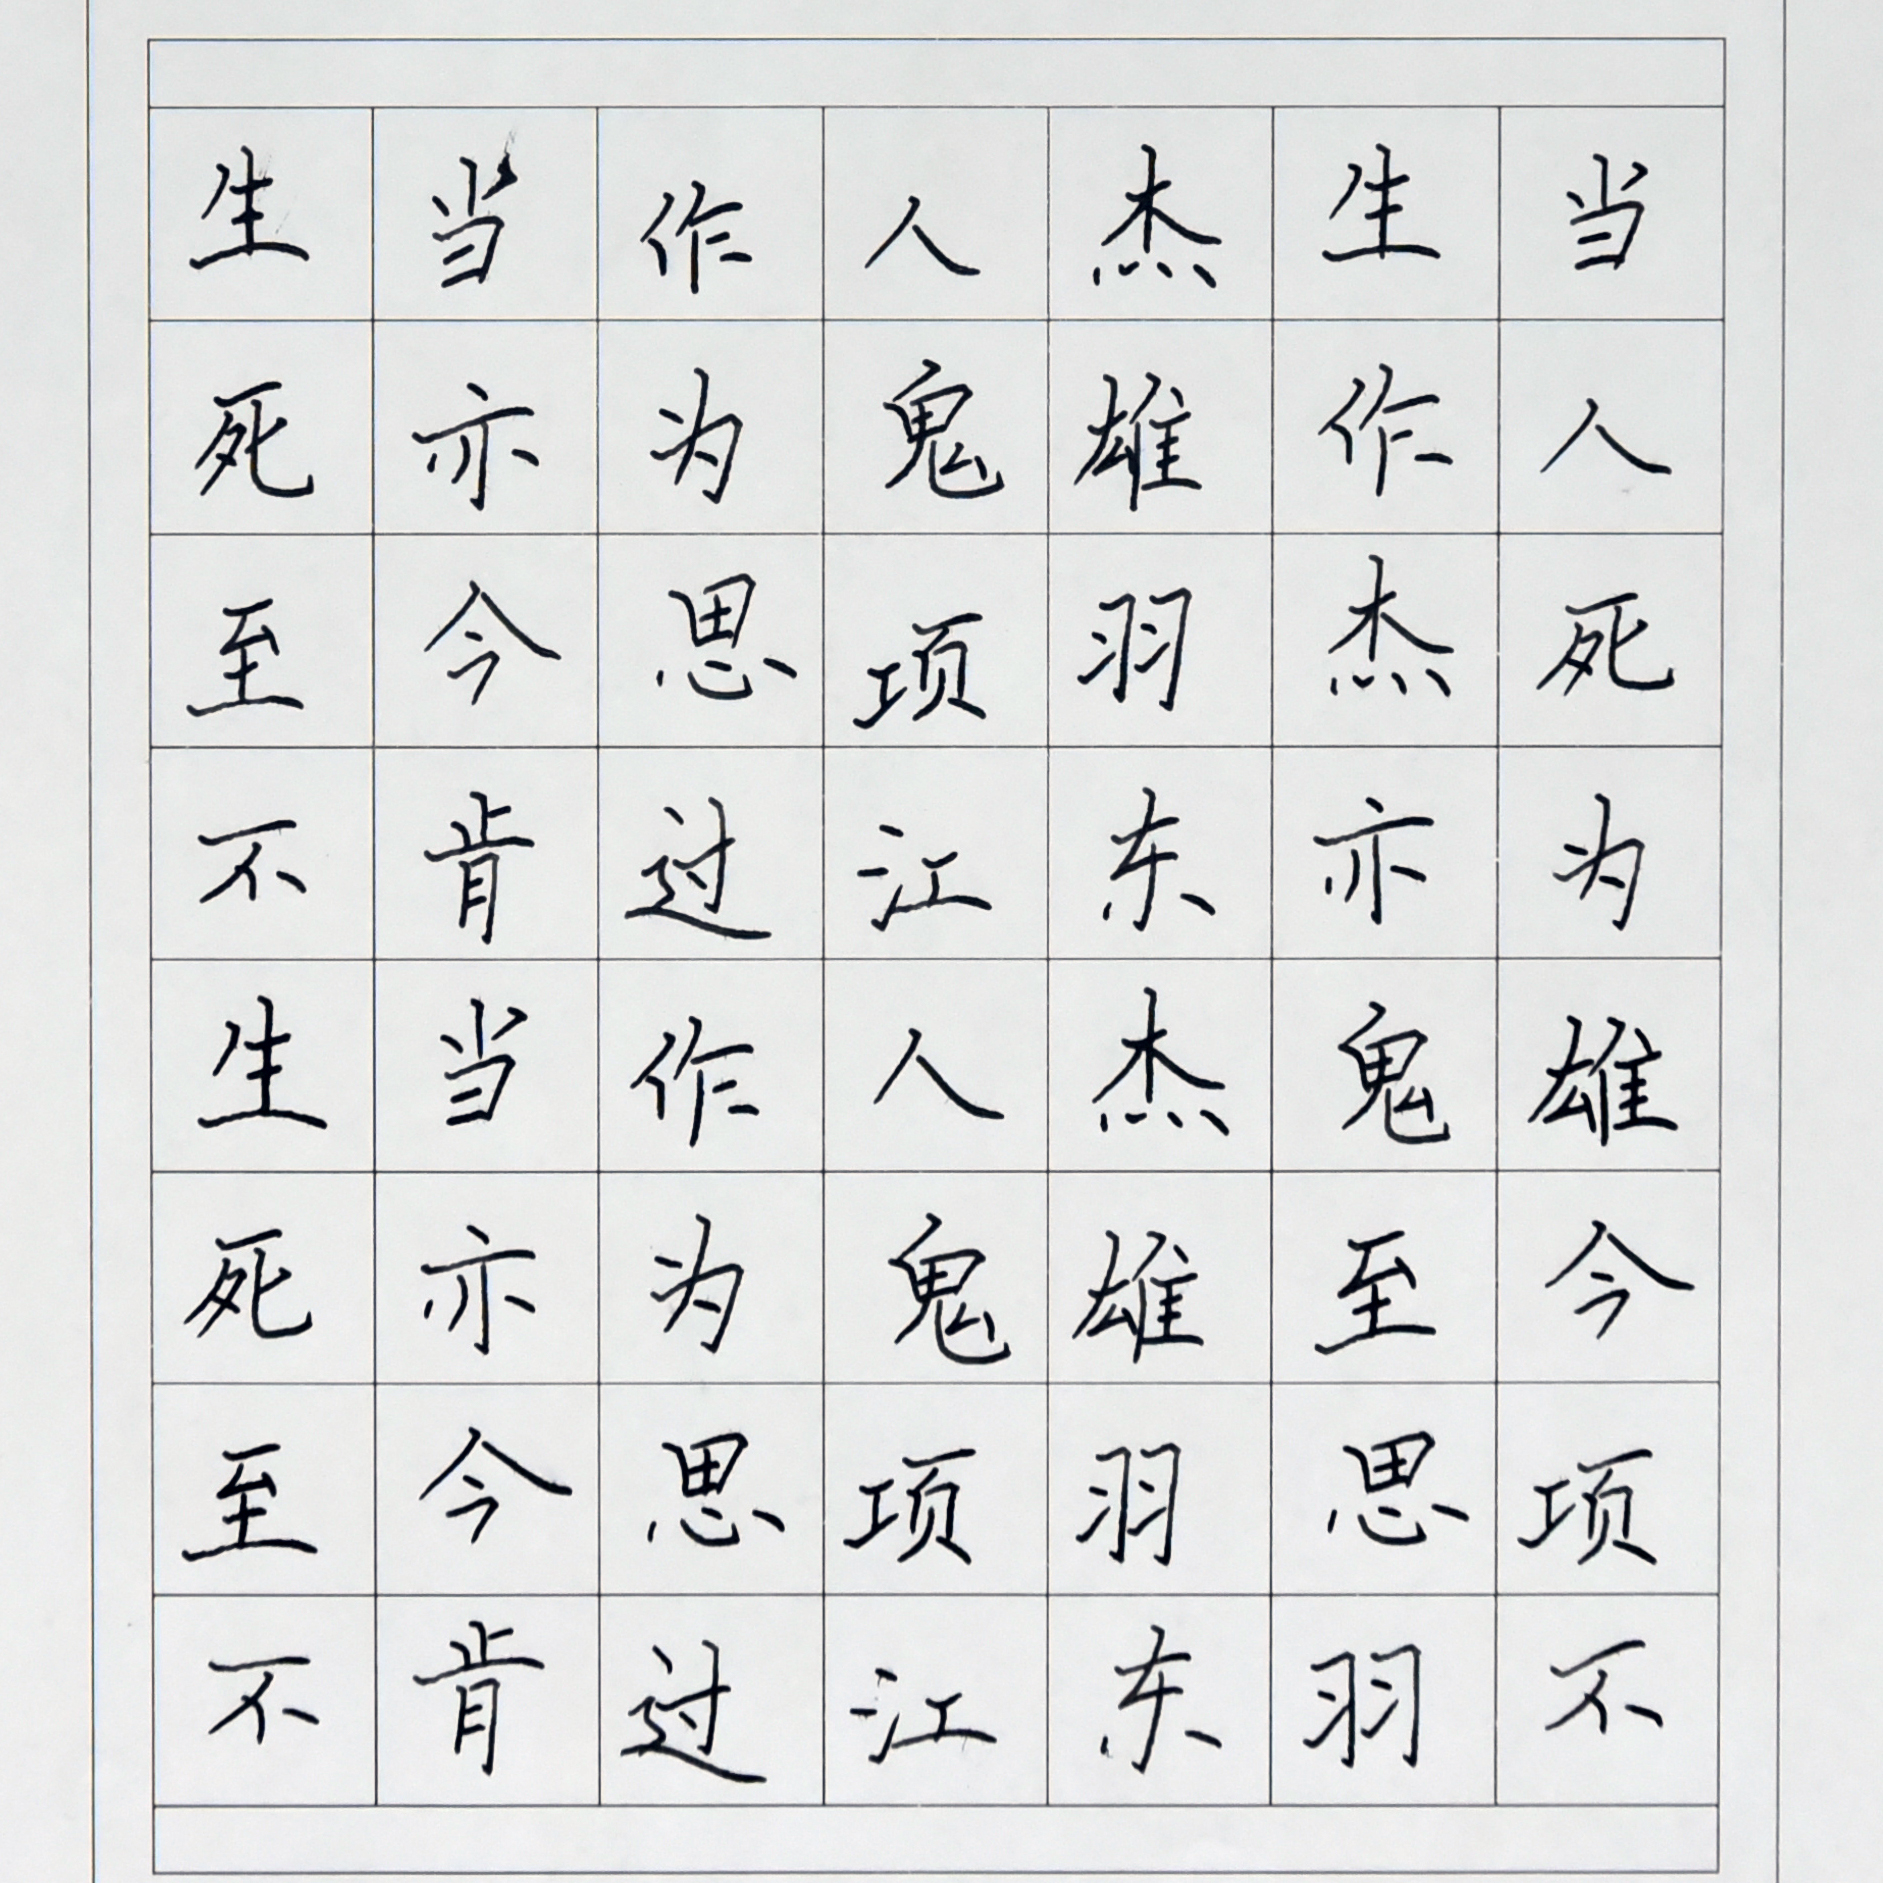 生当作人杰生当
死亦为鬼雄作人
至今思项羽杰死
不肯过江东亦为
生当作人杰鬼雄
死亦为鬼雄至今
至今思项羽思项
不肯过江东羽不